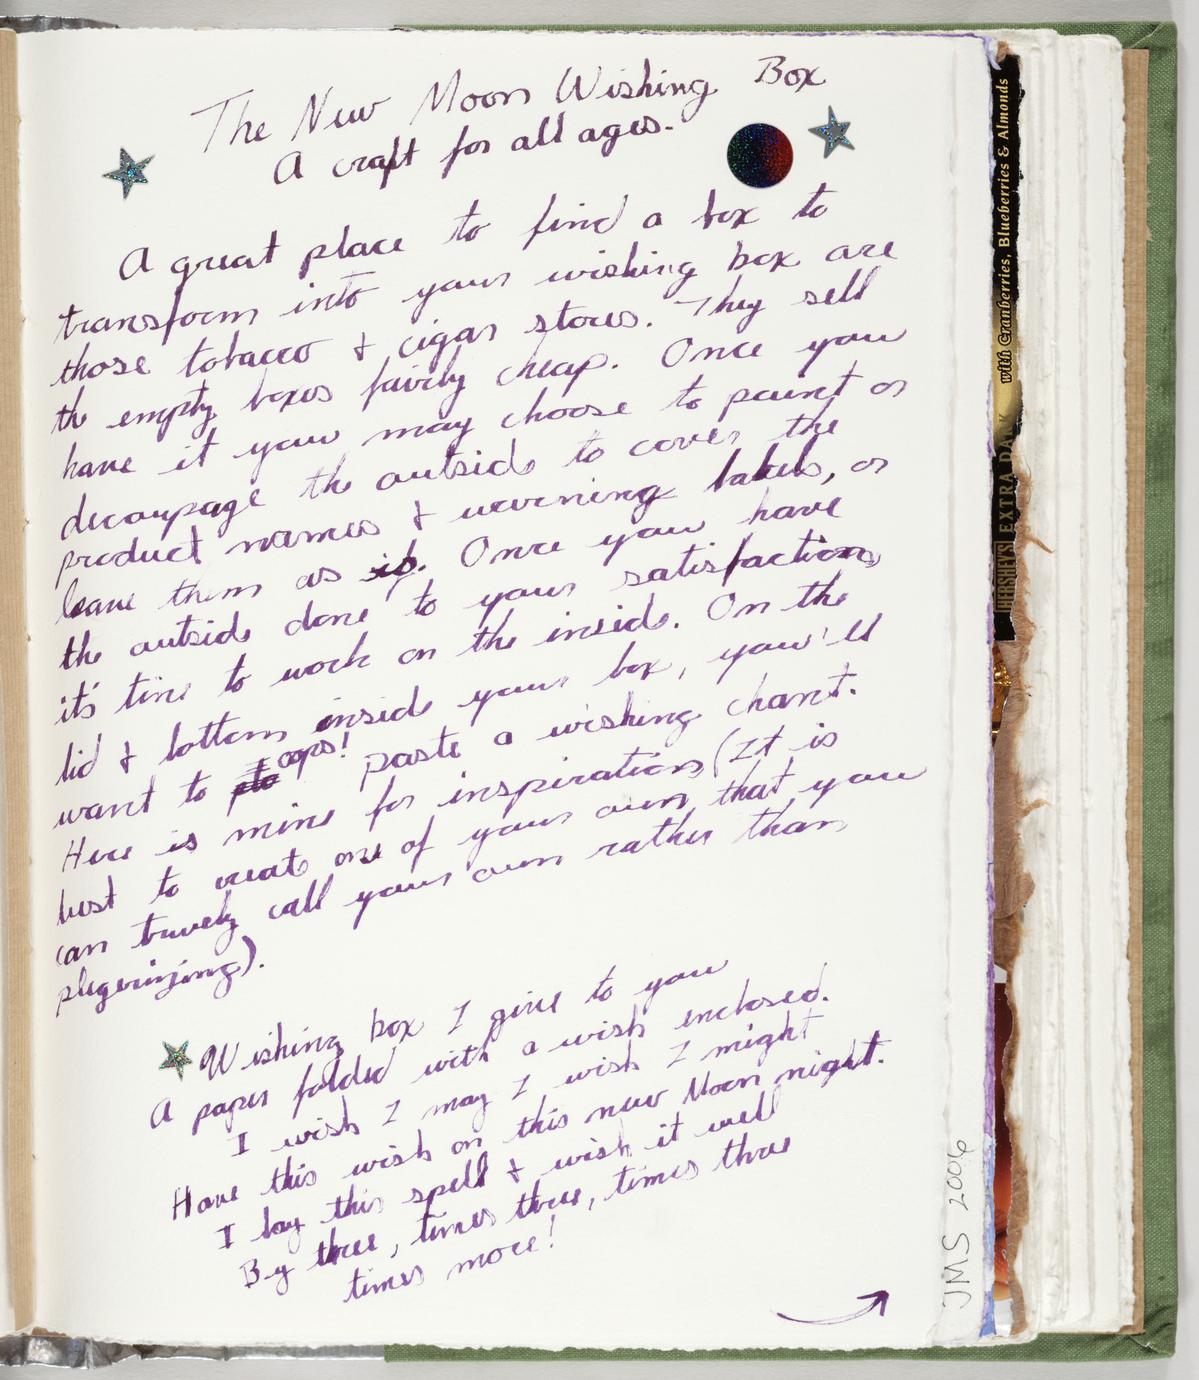 The New Moon Wishing Box
A craft for all ages.
A great place to find a box to
transform into your wishing box are
those tobacco & cigar stores. They sell
the empty boxes fairly cheap. Once you
have it you may choose to paint or
decoupage the outside to cover the
product names & warning labels, or
leave them as is. Once you have
the outside done to your satisfaction
it's time to work on the inside. On the
lid & bottom inside your box, you'll
want to pto oops! paste a wishing chant.
Here is mine for inspiration (It is
best to create one of your own that you
can truely call your own rather than
plegerizing).
Wishing box I give to you
A paper folded with a wish enclosed.
I wish I may I wish I might
Have this wish on this new Moon night.
I lay this spell & wish it well
By three, times three, times three
times more!
JMS 2006
HERSHEY'S EXTRA DARK with Cranberries, Blueberries & Almonds